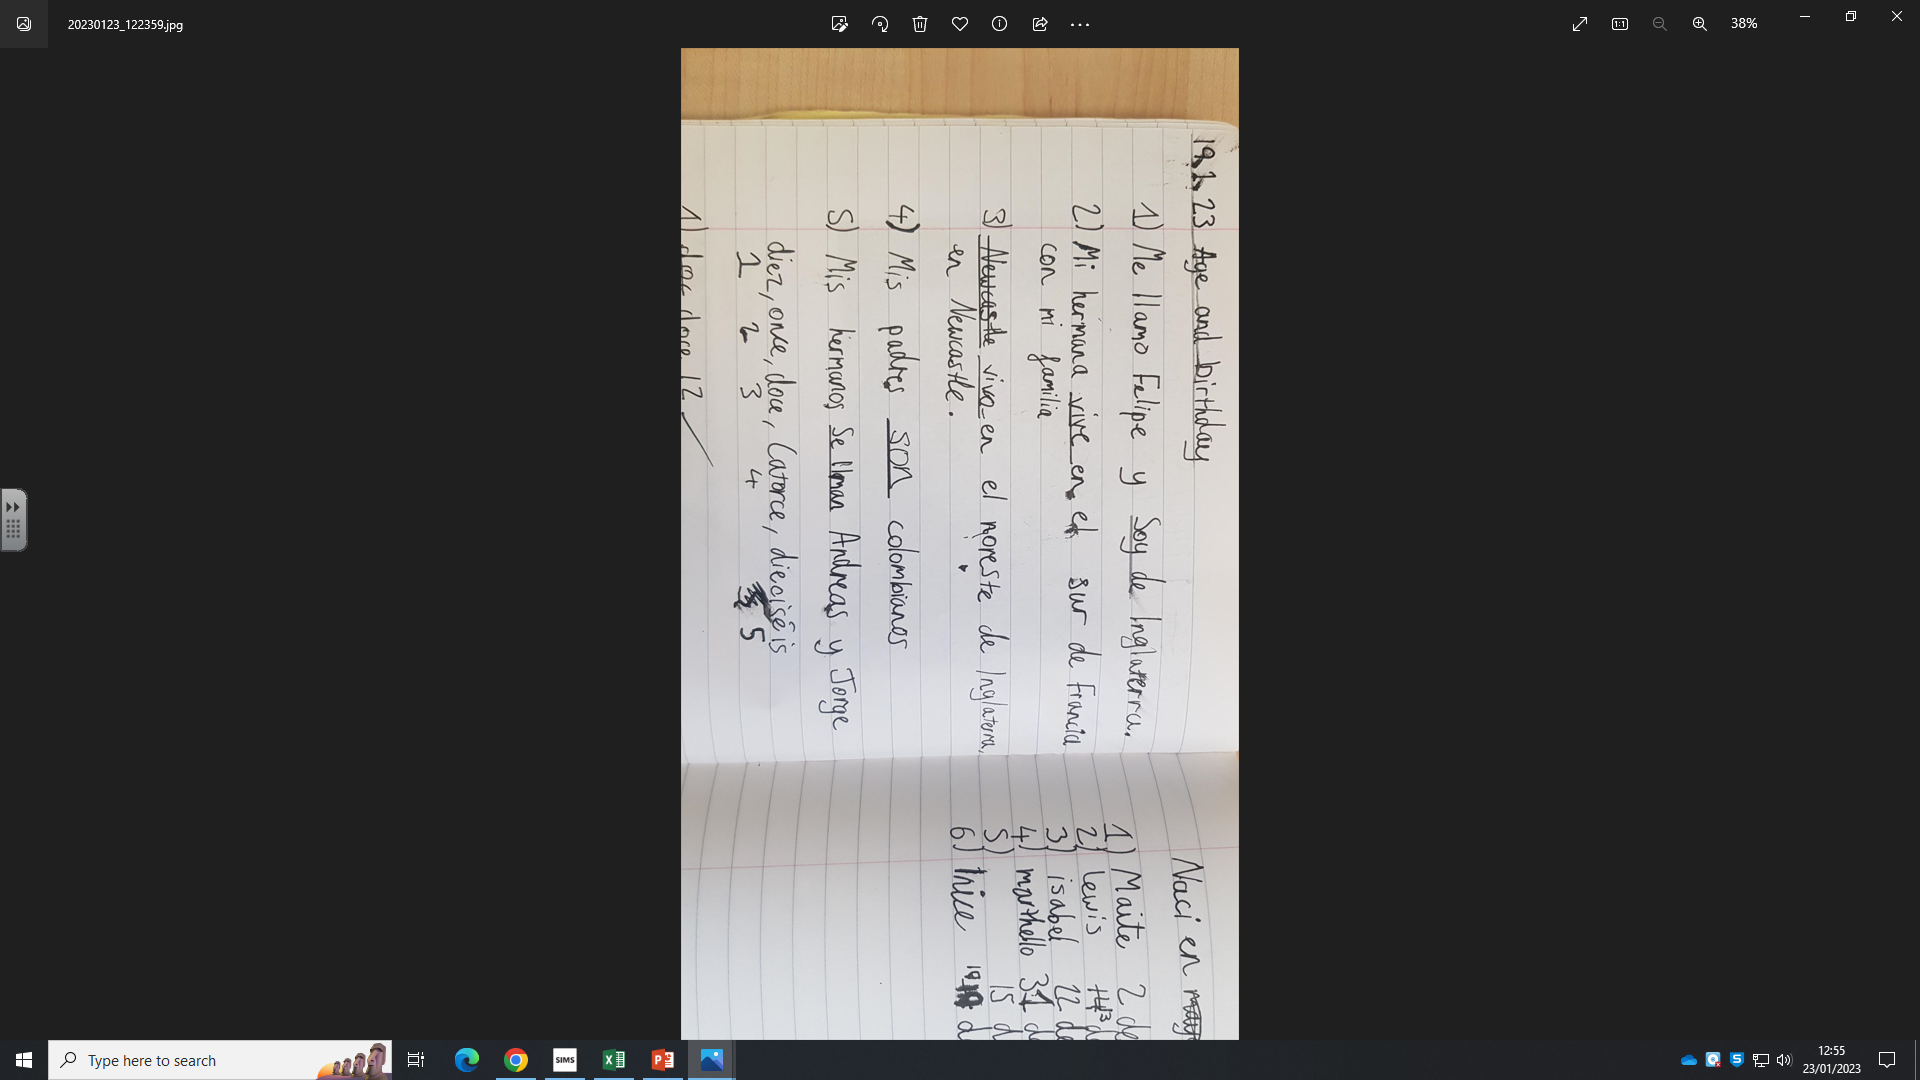 20230123_122359.jpg
38%
19.1.23 Age and birthday
1) Me llamo Felipe y Soy de Inglaterra.
2) Mi hermana vive en el sur de Francia
con mi familia
3) Newcastle vivo en el noreste de Inglaterra,
en Newcastle.
4) Mis padres son colombianos
5) Mis hermanos se llman Andreas y Jorge
diez, once, doce, Catorce, dieciséis
1 2 3 4 5
1) doce 12
Naci en
1) Maite 2 de
2) lewis 13 de
3) isabel 22 de
4) marthello 31 d
5) 15 d
6) trice 19 d
Type here to search
SIMS
12:55
23/01/2023